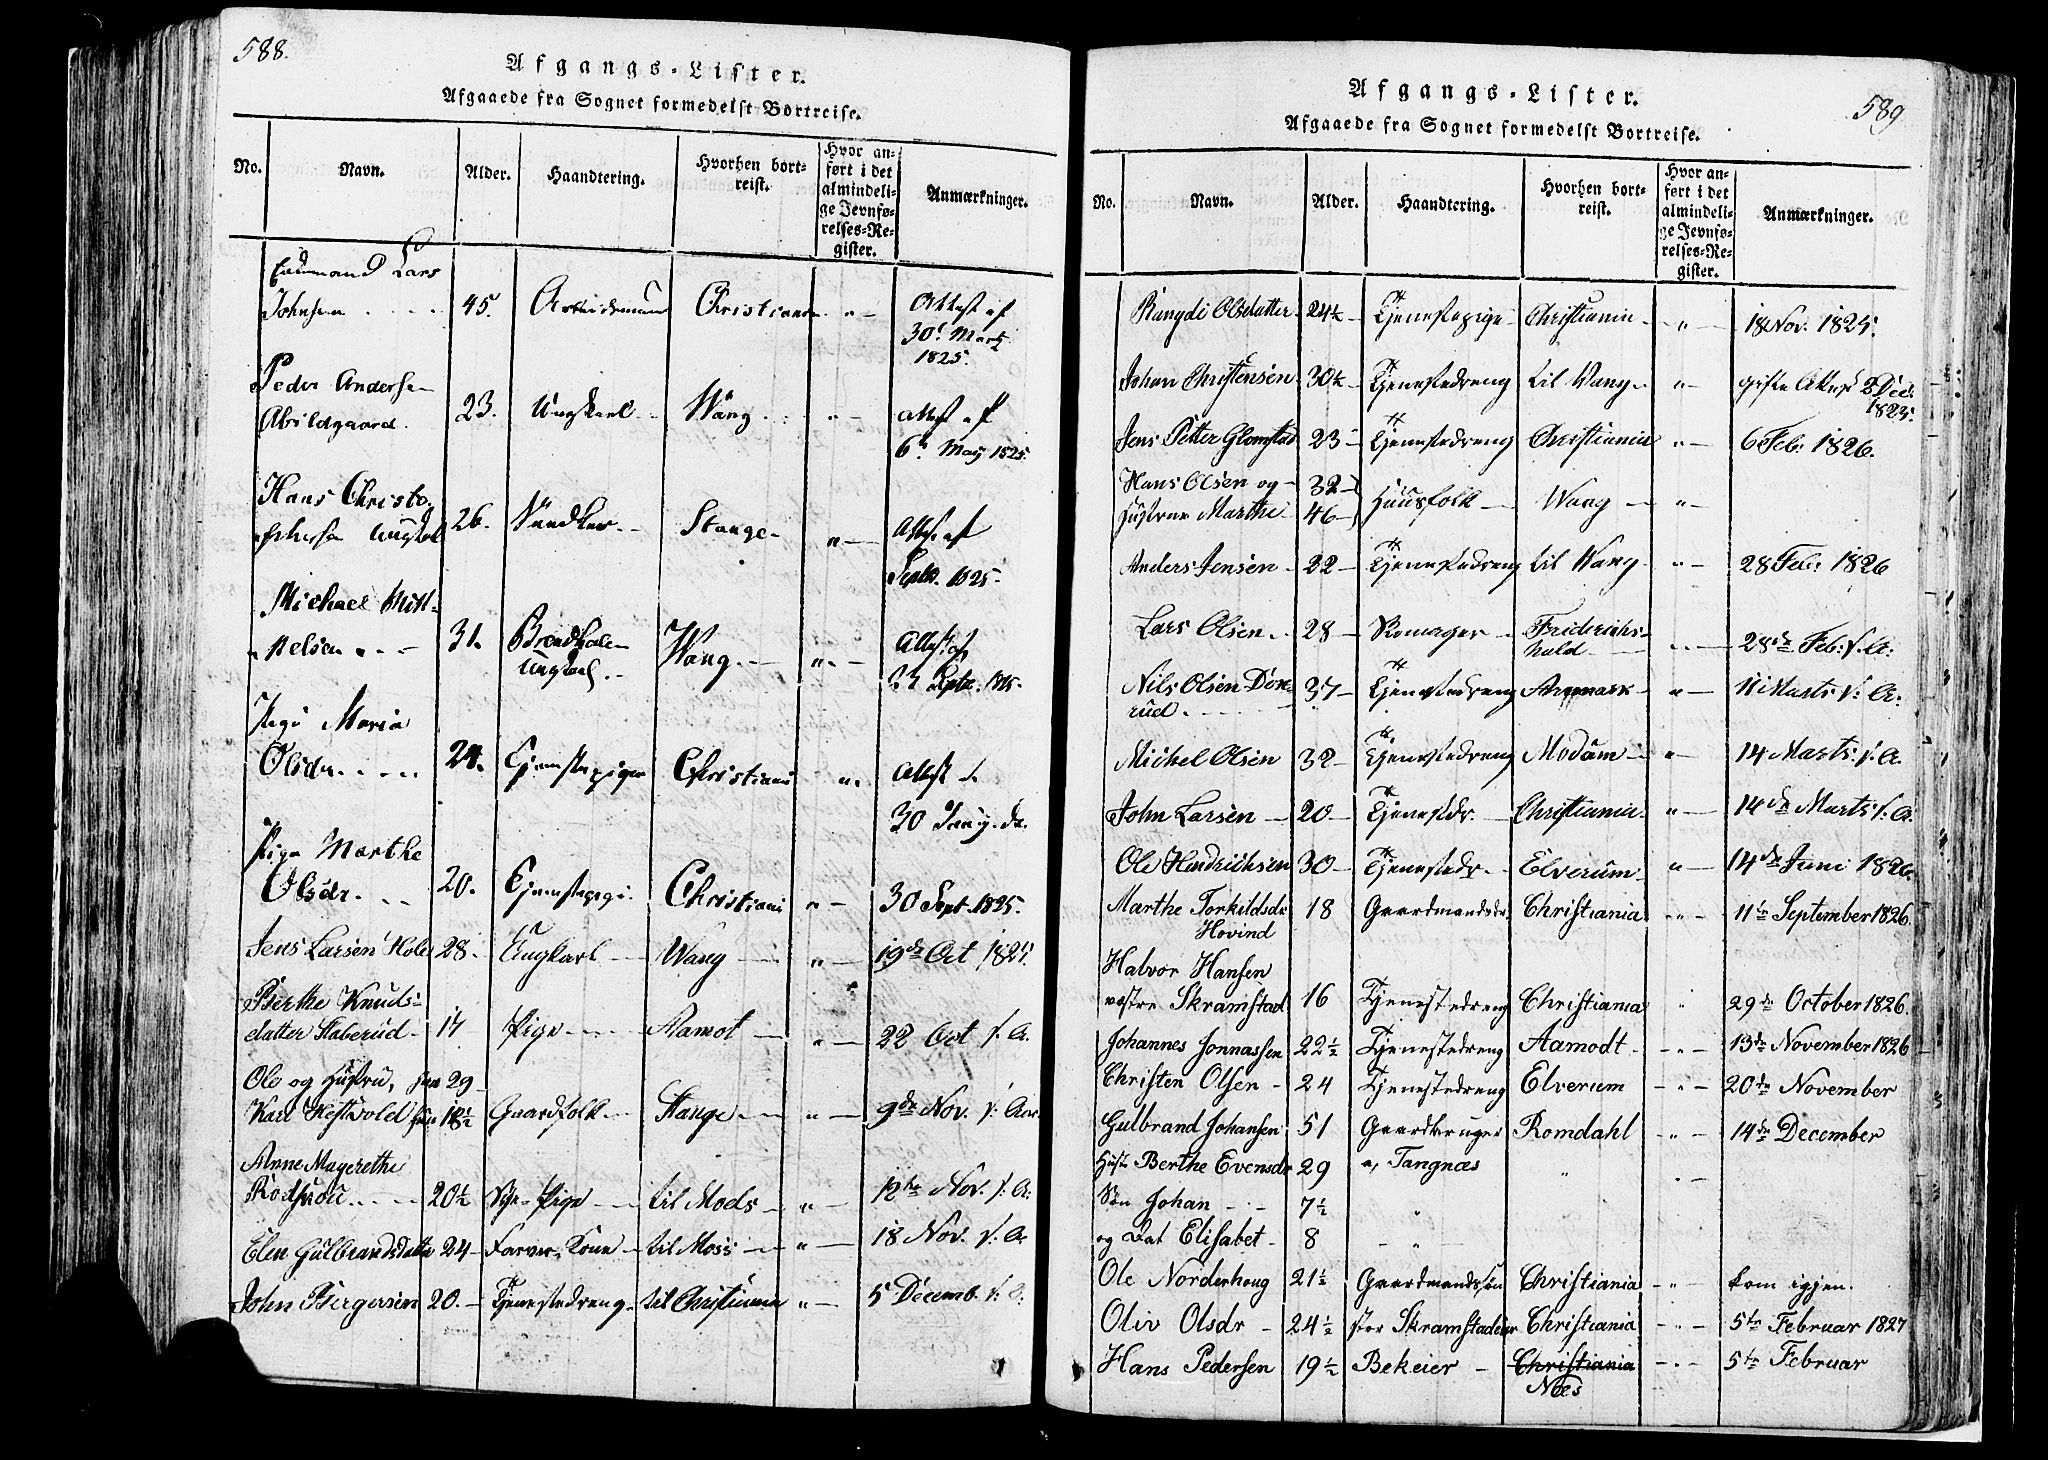 588.
Afgangs-Lister.
Afgaaede fra Sognet formedelst Bortreise.
No. Navn. Alder. Haandtering. Hvorhen bortreist. Hvor anført i det almindelige Jevnførelses-Register. Anmærkninger.
Lars
Johnsen 45. Arbeidsmand Christiania " Attest af
30t Marts
1825.
Peder Andersen
Abildgaard. 23. Ungkarl Wang " attest af
6t May 1825.
Hans Christo
26. Stange " Attest af
Septbr. 1825.
Michael
Nelsen 31. Wang. " Attest af
Ungkarl. 23 Septbr. 1825.
Pige Maria
Olsdr. 24. Tjenstepige Christiania " Attest
30
Pige Marthe
Olsdr. 20. Tjenstepige Christiania " 30 Sept. 1825.
Jens Larsen Hole 28. Ungkarl Wang " 19de Oct 1825.
Berthe Knuds-
datter Staberud 17 Pige Aamot " 22 Oct s. A.
Ole og Hustru, 29
Kari Heftvold 18½ Gaardfolk Stange " 9de Nov. s: Aar
Anne Magrethe
20½ Sye-Pige til Mods " 12te Nov. s: A:
Elen Gulbrandsdatter 24 Farver-Kone til Moss " 18 Nov. s: A.
John Birgersen 20. Tjenestedreng til Christiania " 5 Decemb. s: A.
589
Afgangs-Lister.
Afgaaede fra Sognet formedelst Bortreise.
No. Navn. Alder. Haandtering. Hvorhen bortreist. Hvor anført i det almindelige Jevnførelses-Register. Anmærkninger.
Rangdi Olsdatter 24½ Tjenestepige Christiania " 18 Nov. 1825.
Johan Christensen 30½ Tjenestedreng til Wang " gifte Attest 2 Dec:
1825.
Jens Petter Glomstad 23 Tjenestedreng Christiania " 6 Feb: 1826.
Hans Olsen og 32
Hustrue Marthe 46 Huusfolk Wang "
Anders Jensen 22 Tjenestedreng til Wang " 28 Feb: 1826
Lars Olsen 28 Skomager Friderichs-
hald " 28de Feb: s: A:
Nils Olsen Døn-
rud. 37 Tjenestedreng Aremark " 11 Marts s: A:
Michel Olsen 32 Tjenestedreng Modum " 14 Marts s: A.
John Larsen 20 Tjenestdr. Christiania " 14de Marts s: A.
Ole Hendrichsen 30 Tjenestedr Elverum " 14de Juni 1826.
Marthe Torkildsdr 18 Gaardmandsdr Christiania " 11te September 1826.
Hovind
Halvor Hansen
vestre Skramstad 16 Tjenestedreng Christiania " 29de October 1826.
Johannes Jonnassen 22½ Tjenestedreng Aamodt " 13de November 1826
Christen Olsen 24 Tjenestedreng Elverum " 20de November
Gulbrand Johansen 51 Gaardbruger Romdahl " 14de December
Hust. Berthe Evensdr 29 a, Tangnæs " "
Søn Johan 7½ "
og Dat Elisabet 8 "
Ole Norderhoug 21½ Gaardmandssøn Christiania " kom igjen.
Oliv Olsdr 24½ stor Skramstadeier Christiania " 5te Februar 1827
Hans Pedersen 19½ Bekeier Christiania " 5te Februar
Næs